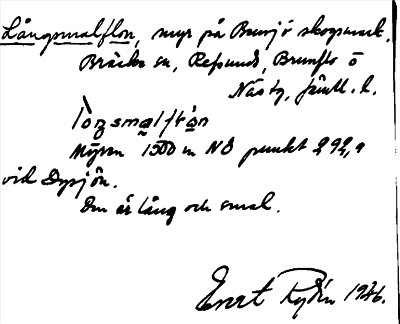 Långsmalflon, myr på Bensjö skogsmark,
Bräcke sn, Refsunds, Brunflo o
Näs tg, Jämtl. l.
Myren 1500 m NO punkt 292,9
vid Dysjön.
Den är lång och smal.
Evert Rydén 1946.